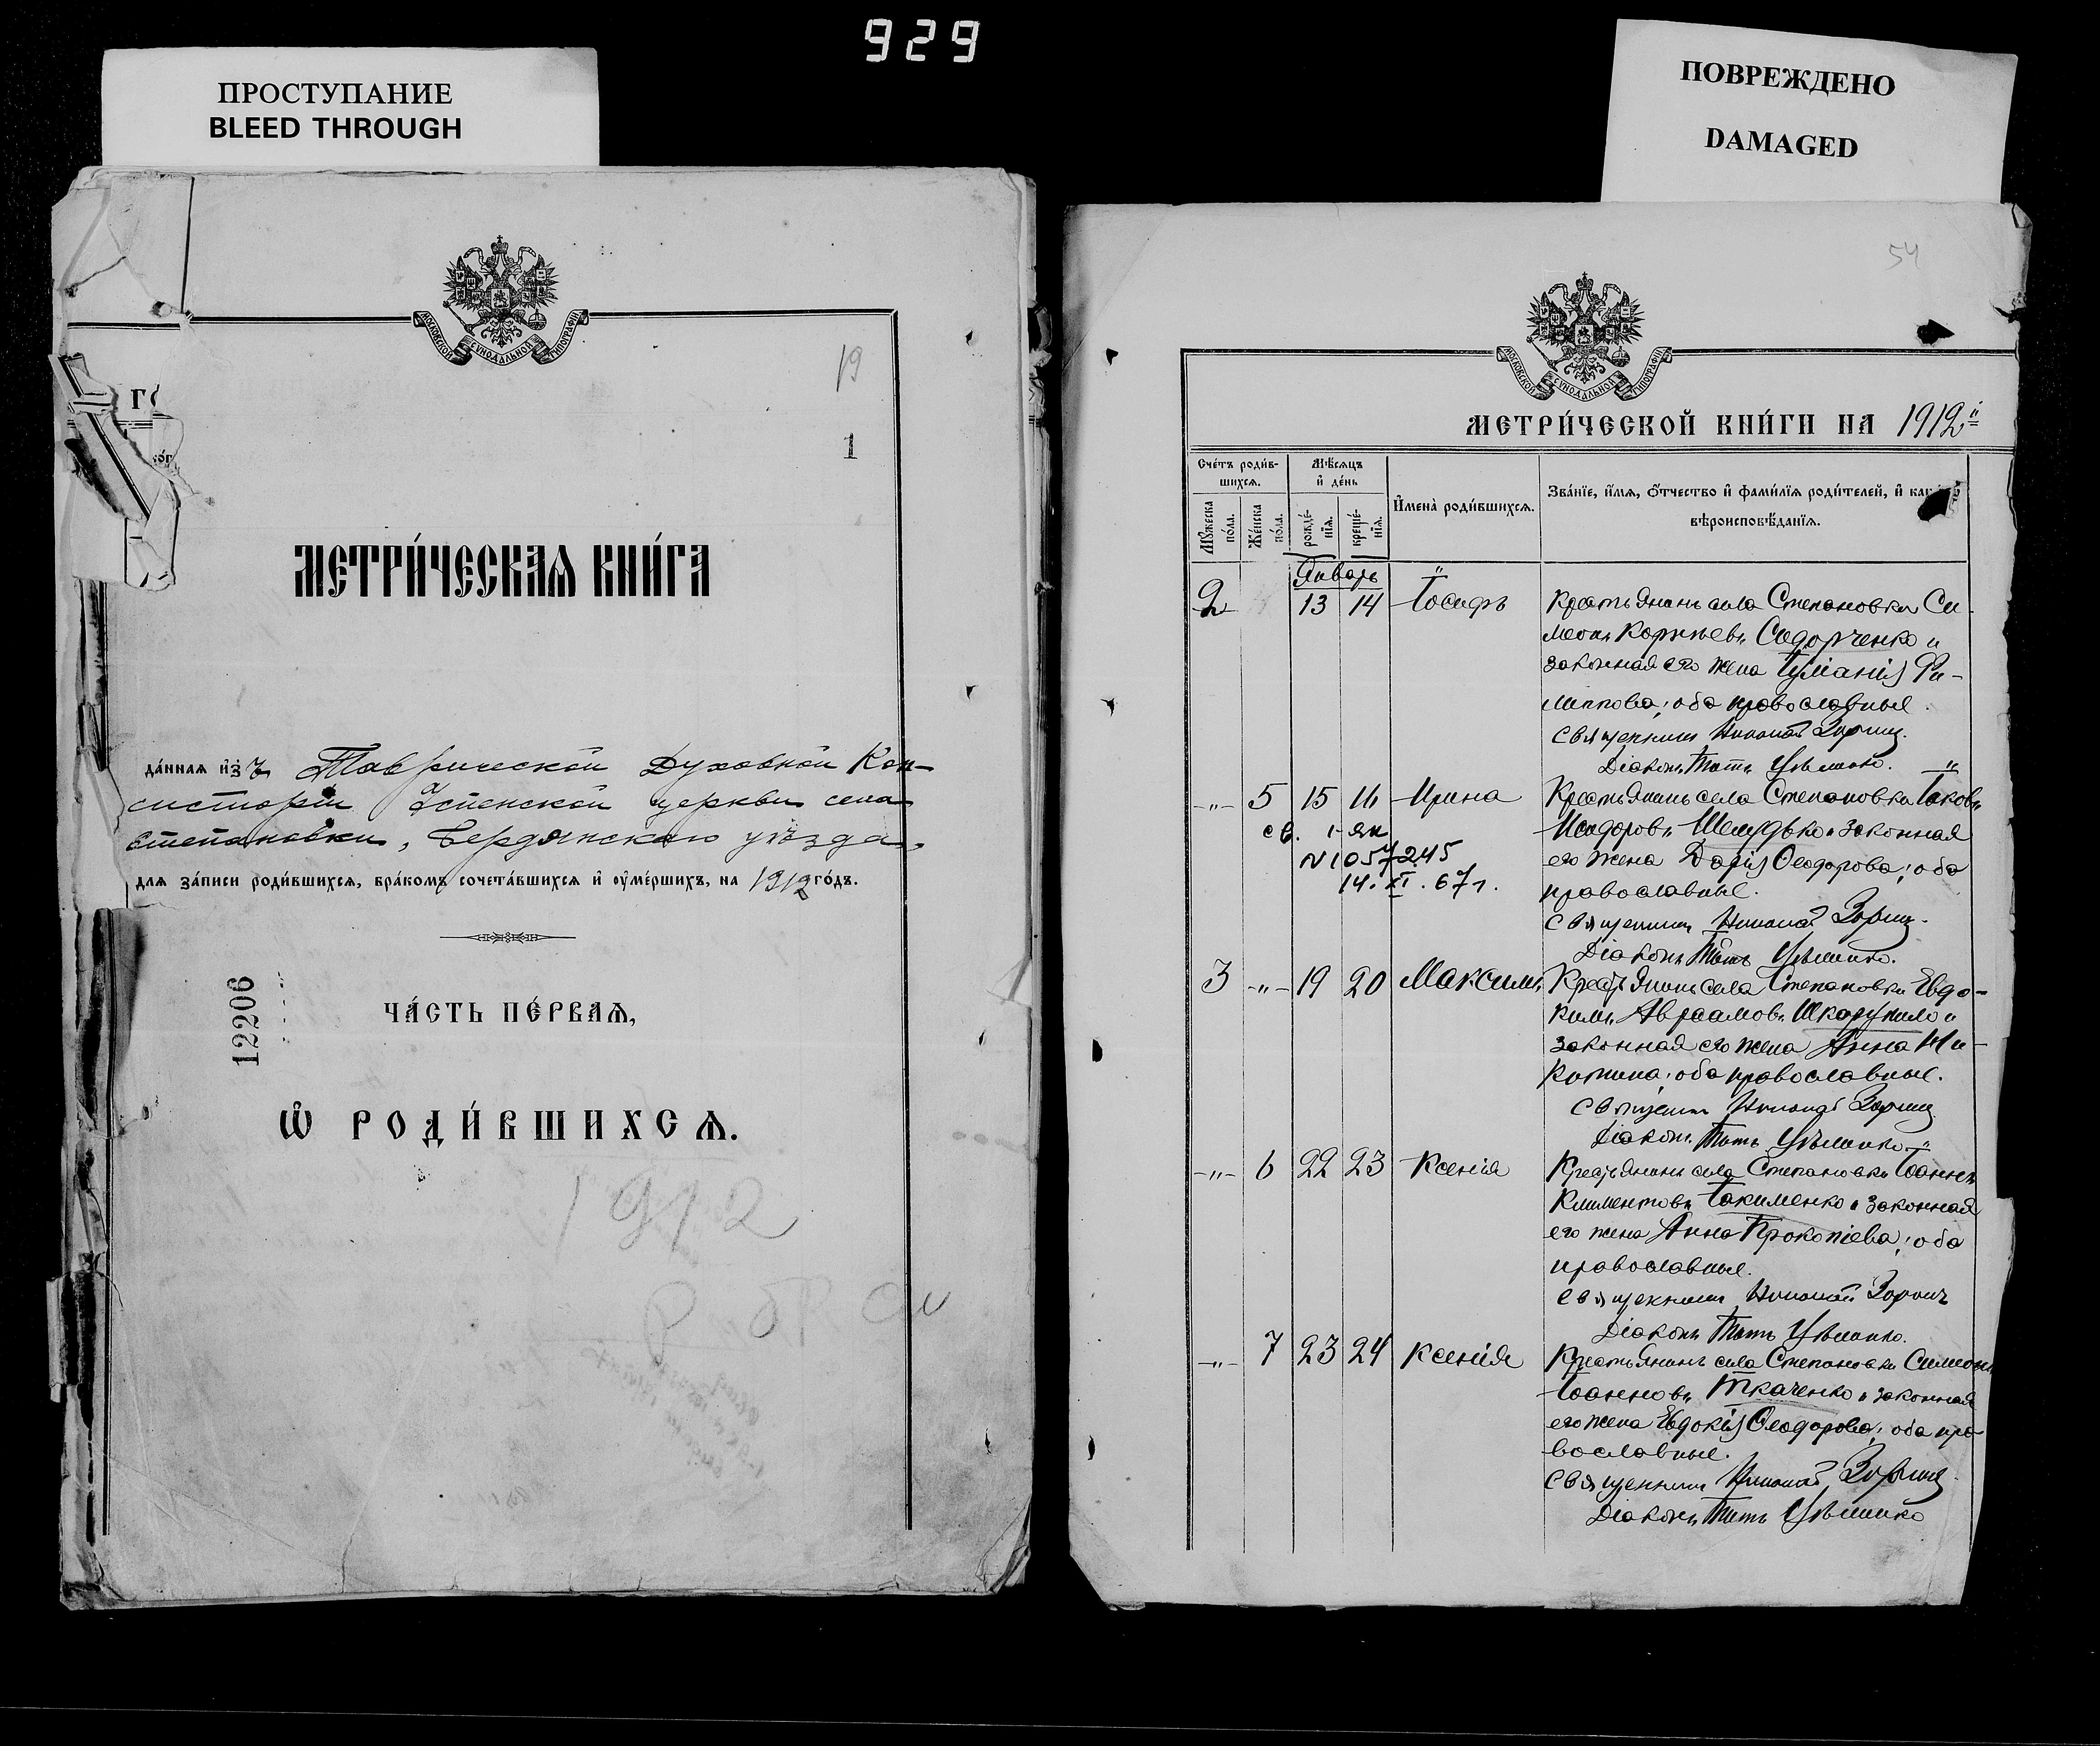 929
ПРОСТУПАНИЕ
BLEED THROUGH
МОСКОВСКОЙ СѴНОДАЛЬНОЙ ТИПОГРАФІИ
19
1
МЕТРИ́ЧЕСКАѦ КНИ́ГА
да́нная изъ Таврической Духовной Кон-
систоріи Успенской церкви села
Степановки, Бердянскаго уѣзда,
для за́писи роди́вшихся, бра́комъ сочета́вшихся и оуме́ршихъ, на 1912 го́дъ.
12206
ЧА́СТЬ ПЕ́РВАѦ,
Ѡ РОДИ́ВШИХСѦ.
1912
ПОВРЕЖДЕНО
DAMAGED
54
МОСКОВСКОЙ СѴНОДАЛЬНОЙ ТИПОГРАФІИ
МЕТРИ́ЧЕСКОЙ КНИ́ГИ НА 1912й
Сче́тъ роди́в-
шихся.
Мѣ́сяцъ
и де́нь
Мꙋ́жеска по́ла.
Же́нска по́ла.
рожде́-
нїя.
креще́-
нїя.
Имена̀ роди́вшихся.
Зва́нїе, и́мя, о́тчество и фами́лїя роди́телей, и как
вѣроисповѣ́данїя.
Январь
2 13 14 Іосифъ Крестьянинъ села Степановки Си-
меонъ Корнѣевъ Сидорченко и
законная его жена Іуліанія Фи-
липпова; оба православные.
Священникъ Николай Зоринъ.
Діаконъ Титъ
-"- 5 15 16 Ирина Крестьянинъ села Степановки Іаковъ
Исидоровъ и законная
его жена Дарія Ѳеодорова; оба
православные.
св. 1-ЯИ
N 1057245
14.XI.67г.
Священникъ Николай Зоринъ.
Діаконъ Титъ
3 -"- 19 20 Максимъ Крестьянинъ села Степановки Евдо-
кимъ Авраамовъ Шкарупило и
законная его жена Анна Ни-
китина; оба православные.
Священникъ Николай Зоринъ
Діаконъ Титъ
-"- 6 22 23 Ксенія Крестьянинъ села Степановки Іоаннъ
Климентовъ Іакименко и законная
его жена Анна Прокопіева; оба
православные.
Священникъ Николай Зоринъ
Діаконъ Титъ
-"- 7 23 24 Ксенія Крестьянинъ села Степановки Симеонъ
Іоанновъ Ткаченко и законная
его жена Евдокія Ѳеодорова; оба пра-
вославные.
Священникъ Николай Зоринъ
Діаконъ Титъ